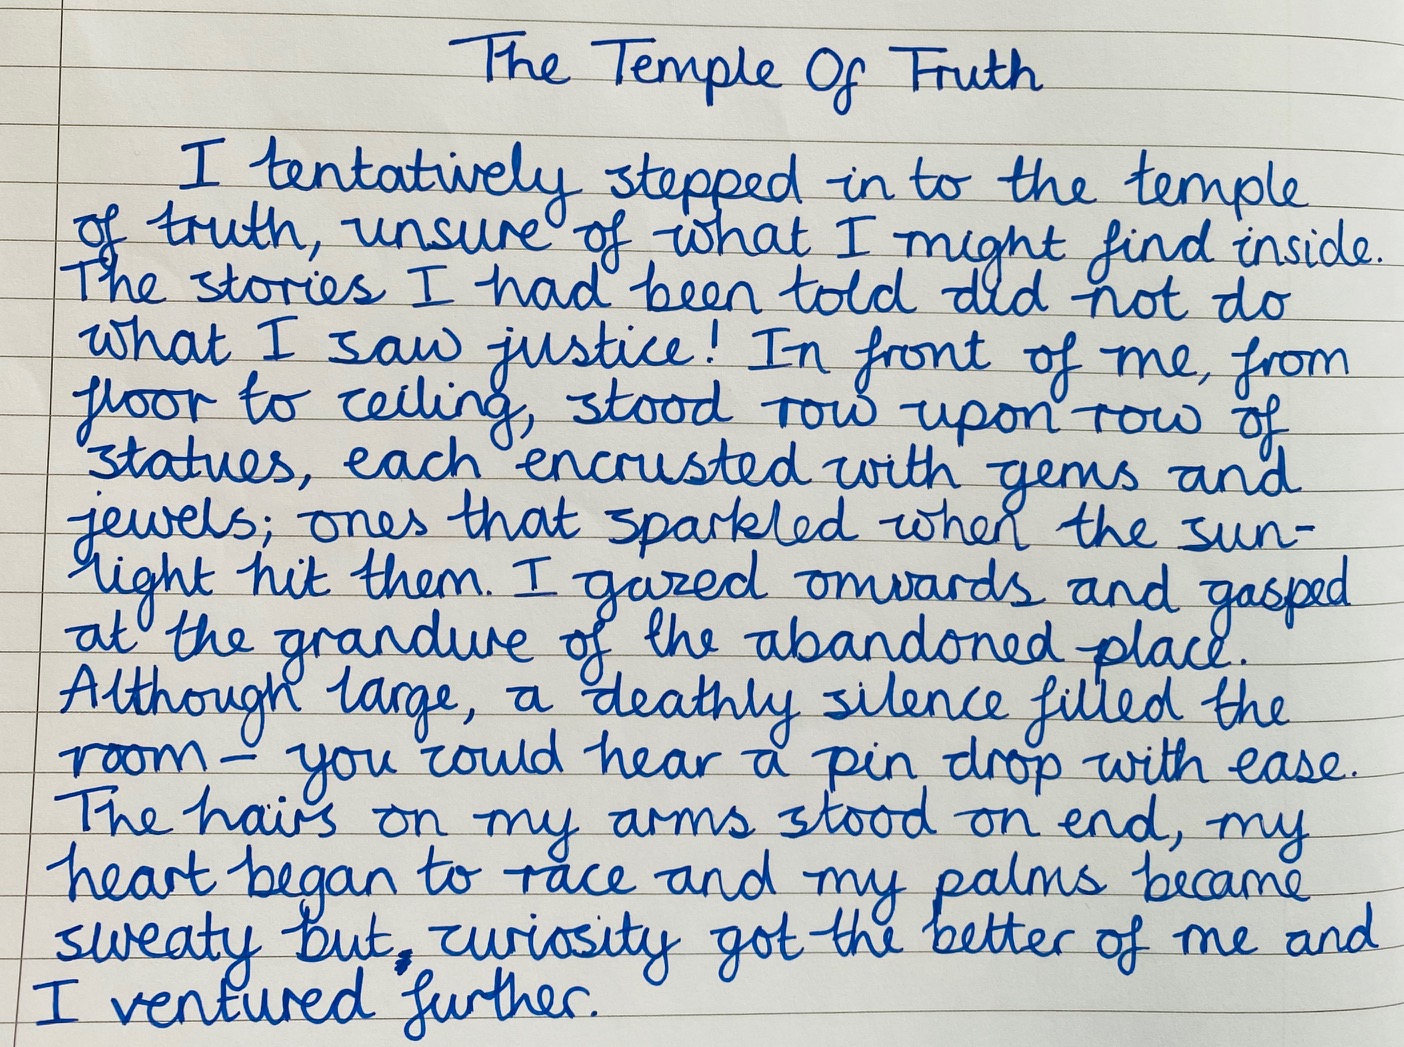 The Temple Of Truth
I tentatively stepped in to the temple
of truth, unsure of what I might find inside.
The stories I had been told did not do
what I saw justice! In front of me, from
floor to ceiling, stood row upon row of
statues, each encrusted with gems and
jewels; ones that sparkled when the sun-
light hit them. I gazed onwards and gasped
at the grandure of the abandoned place.
Although large, a deathly silence filled the
room – you could hear a pin drop with ease.
The hairs on my arms stood on end, my
heart began to race and my palms became
sweaty but, curiosity got the better of me and
I ventured further.